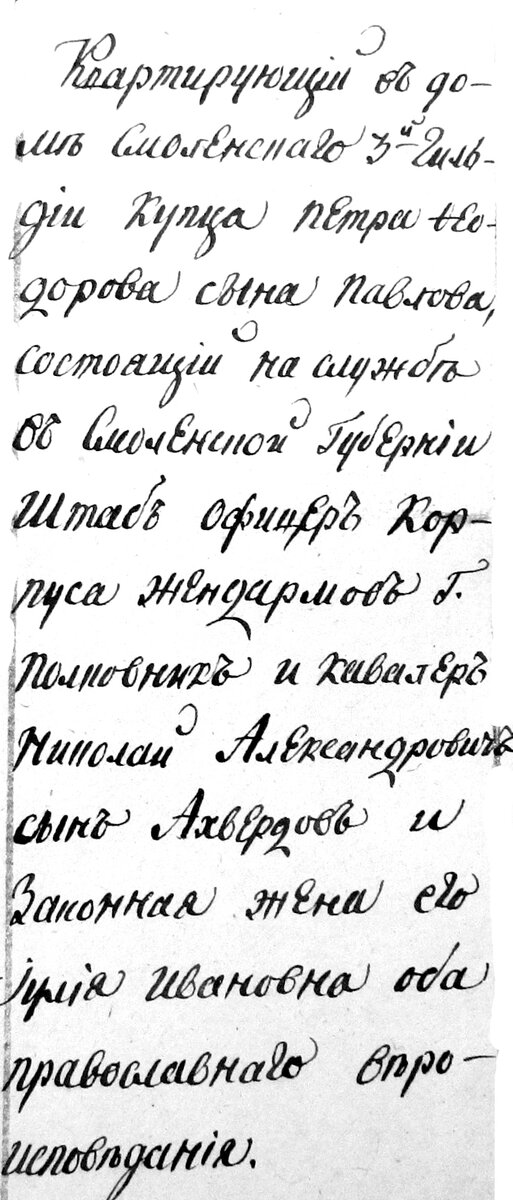 Квартирующій въ до-
мѣ Смоленскаго 3й Гиль-
діи Купца Петра Ѳео-
дорова сына Павлова,
состоящій на службѣ
въ Смоленской Губерніи
Штабъ офицеръ Кор-
пуса Жендармовъ Г.
Полковникъ и Кавалеръ
Николай Александровичъ
сынъ Ахвердовъ и
Законная жена его
Іулія Ивановна оба
православнаго вѣро-
исповѣданія.